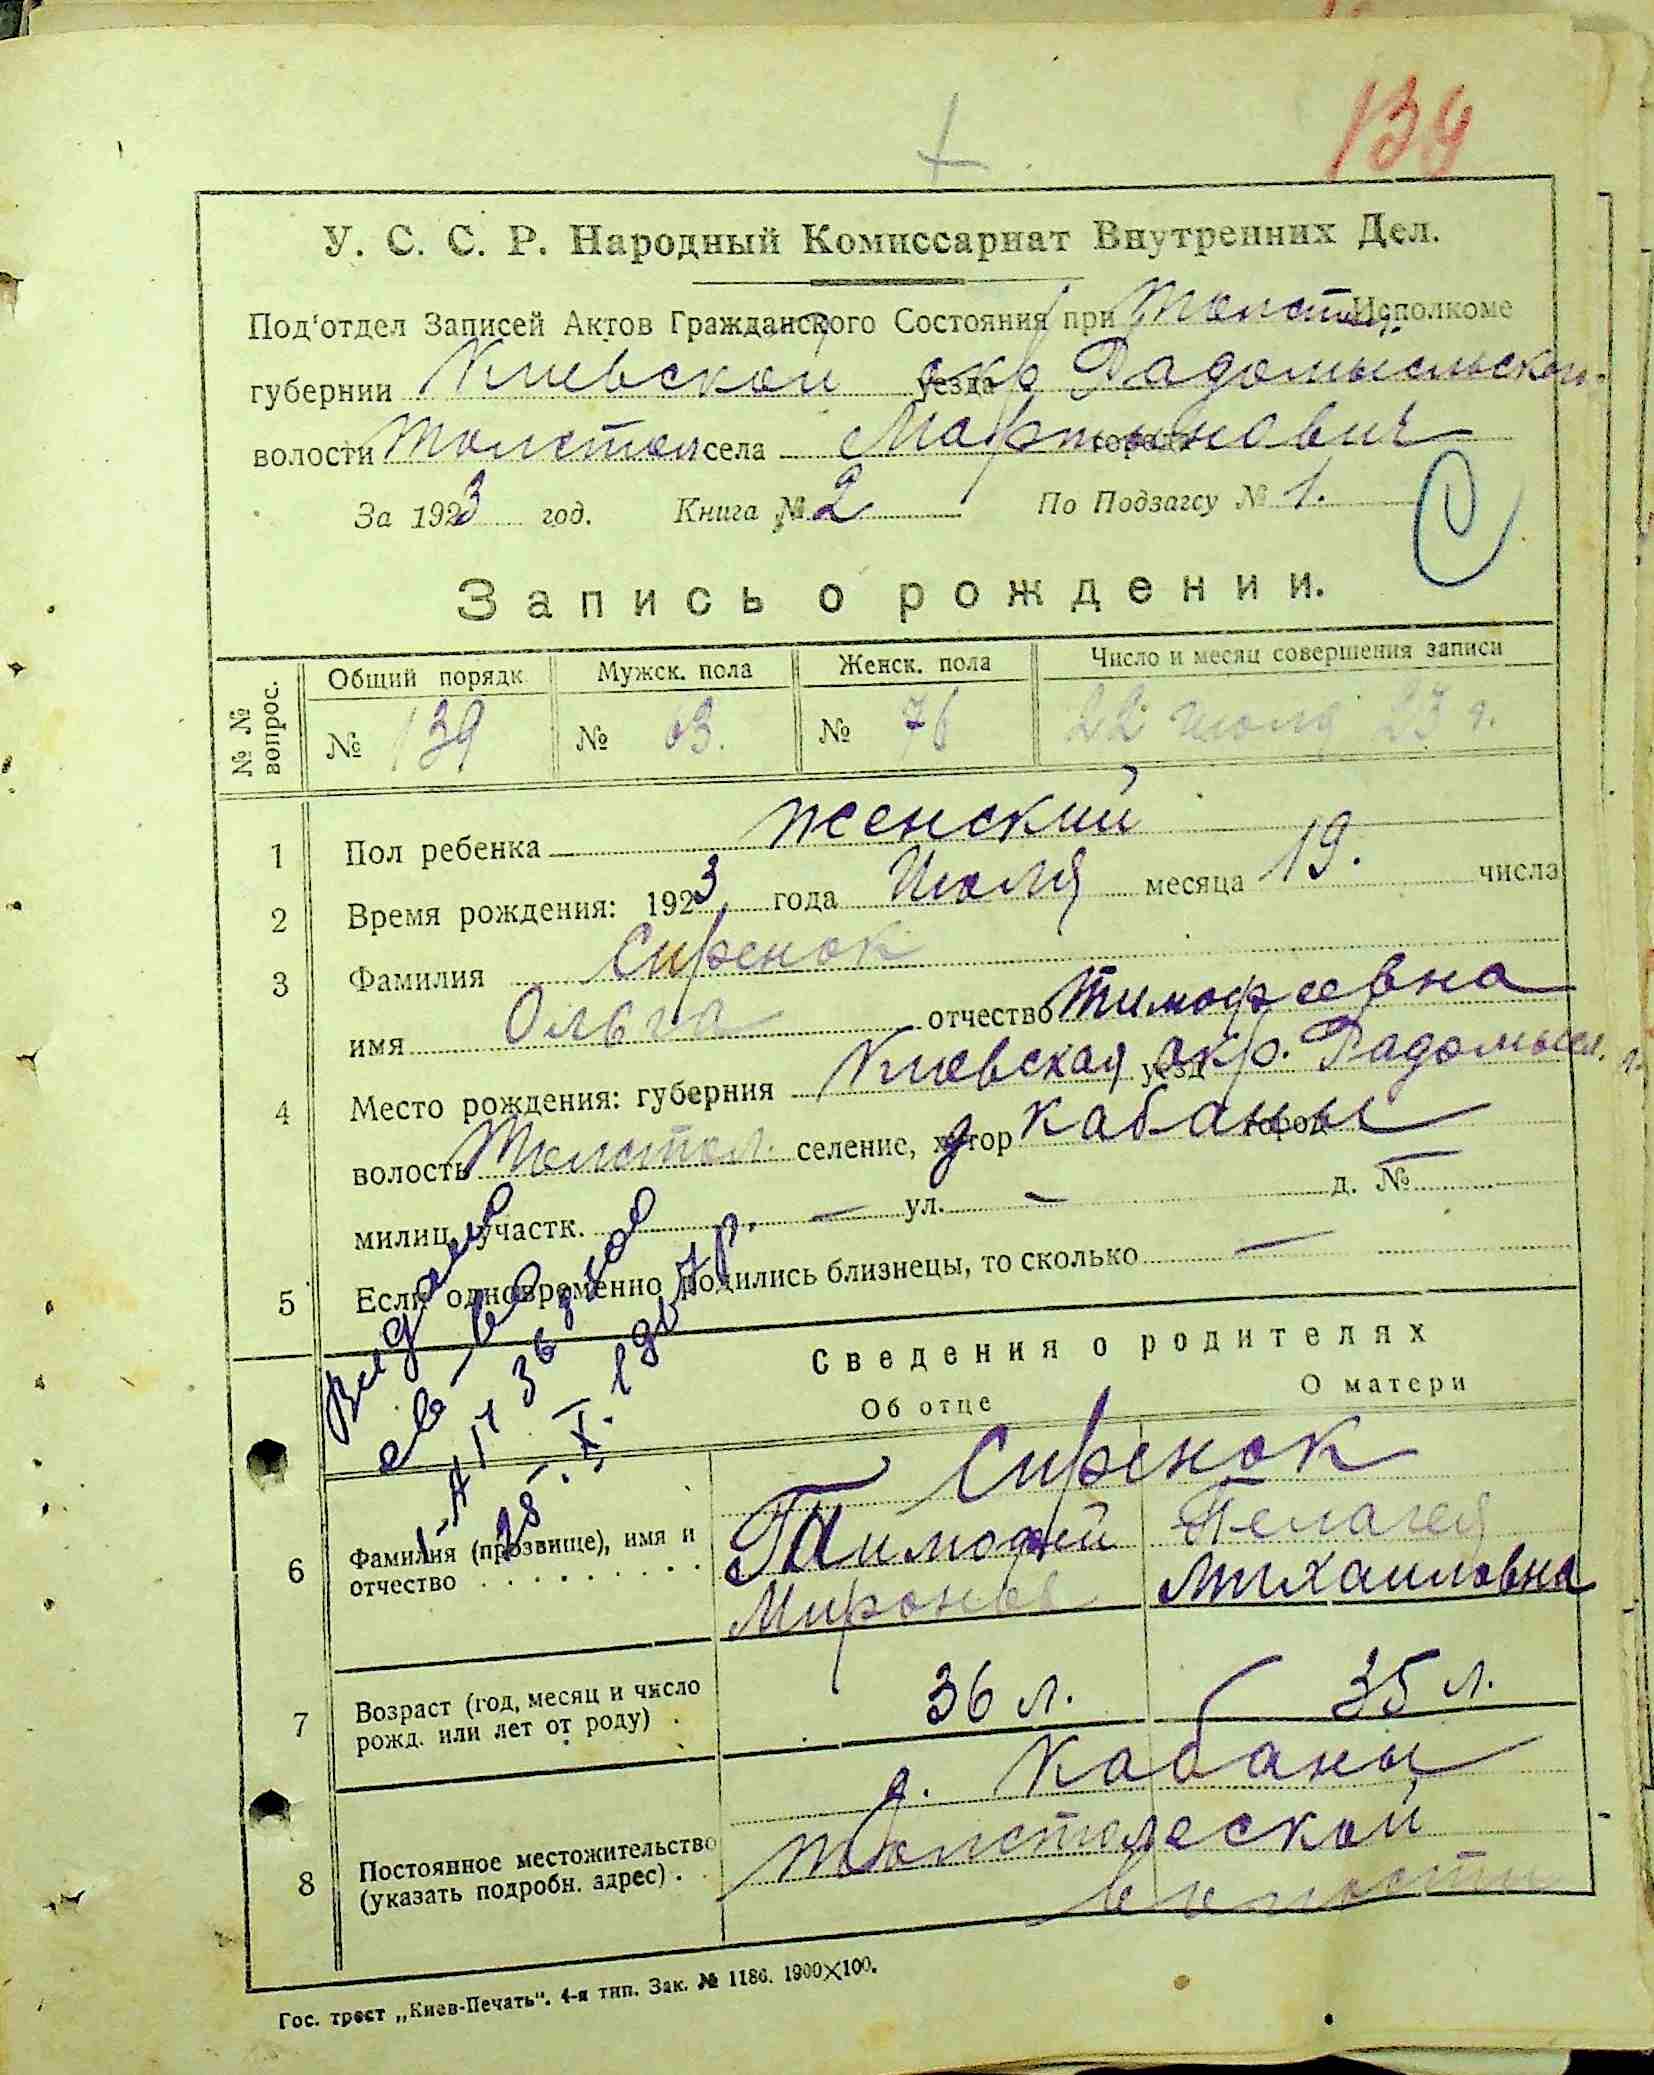 139
У. С. С. Р. Народный Комиссариат Внутренних Дел.
Под'отдел Записей Актов Гражданского Состояния при Толстол. Исполкоме
губернии Киевской уезда окр Радомысльской.
волости Толстол села Мартынович города
За 1923 год. Книга № 2 По Подзагсу № 1.
С
Запись о рождении.
№ № вопрос. Общий порядк Мужск. пола Женск. пола Число и месяц совершения записи
№ 139 № 63. № 76 22 июля 23 г.
1 Пол ребенка женский
2 Время рождения: 1923 года Июля месяца 19. числа
3 Фамилия Сиренок
имя Ольга отчество Тимофеевна
4 Место рождения: губерния Киевская уезд окр. Радомысл.
волость Толстол. селение, хутор д Кабаны город
милиц. участк. — ул. — д. № —
5 Если одновременно родились близнецы, то сколько —
Сведения о родителях
Об отце О матери
Сиренок
6 Фамилия (прозвище), имя и Тимофей Пелагея
отчество Миронов Михаиловна
7 Возраст (год, месяц и число 36 л. 35 л.
рожд. или лет от роду)
д. Кабаны
8 Постоянное местожительство Толстолеской
(указать подробн. адрес) волости
Гос. трест „Киев-Печать“. 4-я тип. Зак. № 1186. 1900×100.